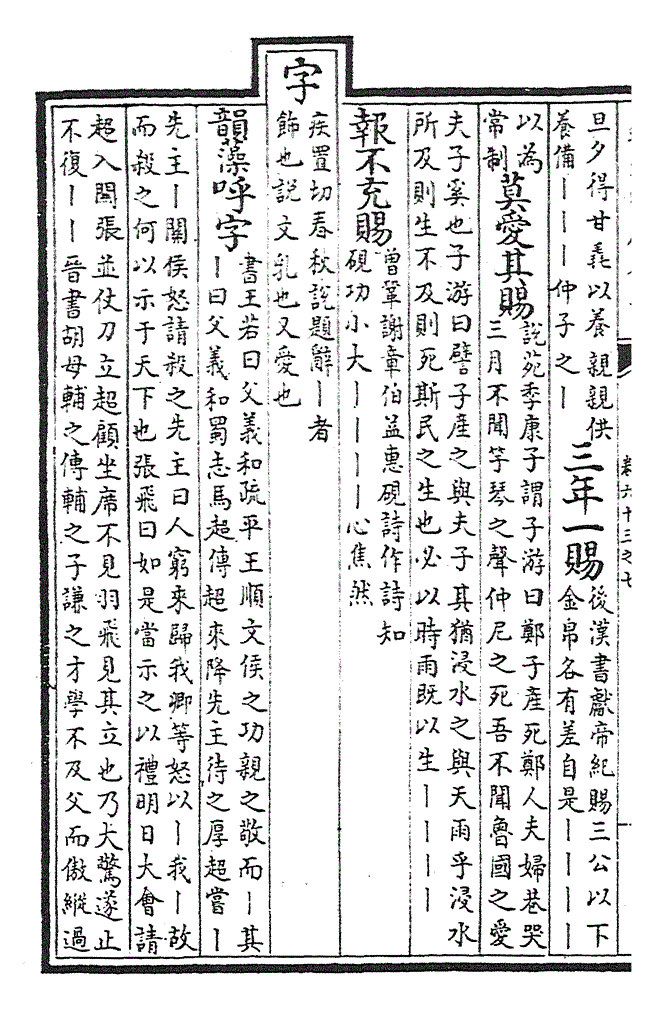 卷六十三之七
旦夕得甘毳以養親親供
養備丨丨丨仲子之丨
三年一賜
後漢書獻帝紀賜三公以下
金帛各有差自是丨丨丨丨
以為
常制
莫愛其賜
說苑季康子謂子游曰鄭子產死鄭人夫婦巷哭
三月不聞竽琴之聲仲尼之死吾不聞魯國之愛
夫子奚也子游曰譬子產之與夫子其猶浸水之與天雨乎浸水
所及則生不及則死斯民之生也必以時雨既以生丨丨丨丨
報不充賜
曾鞏謝章伯益惠硯詩作詩知
硯功小大丨丨丨丨心焦然
字
疾置切春秋說題辭丨者
飾也說文乳也又愛也
韻藻呼字
書王若曰父義和疏平王順文侯之功親之敬而丨其
丨曰父義和蜀志馬超傳超來降先主待之厚超嘗丨
先主丨關侯怒請殺之先主曰人窮來歸我卿等怒以丨我丨故
而殺之何以示于天下也張飛曰如是當示之以禮明日大會請
超入關張並仗刀立超顧坐席不見羽飛見其立也乃大驚遂止
不復丨丨晉書胡母輔之傳輔之子謙之才學不及父而傲縱過